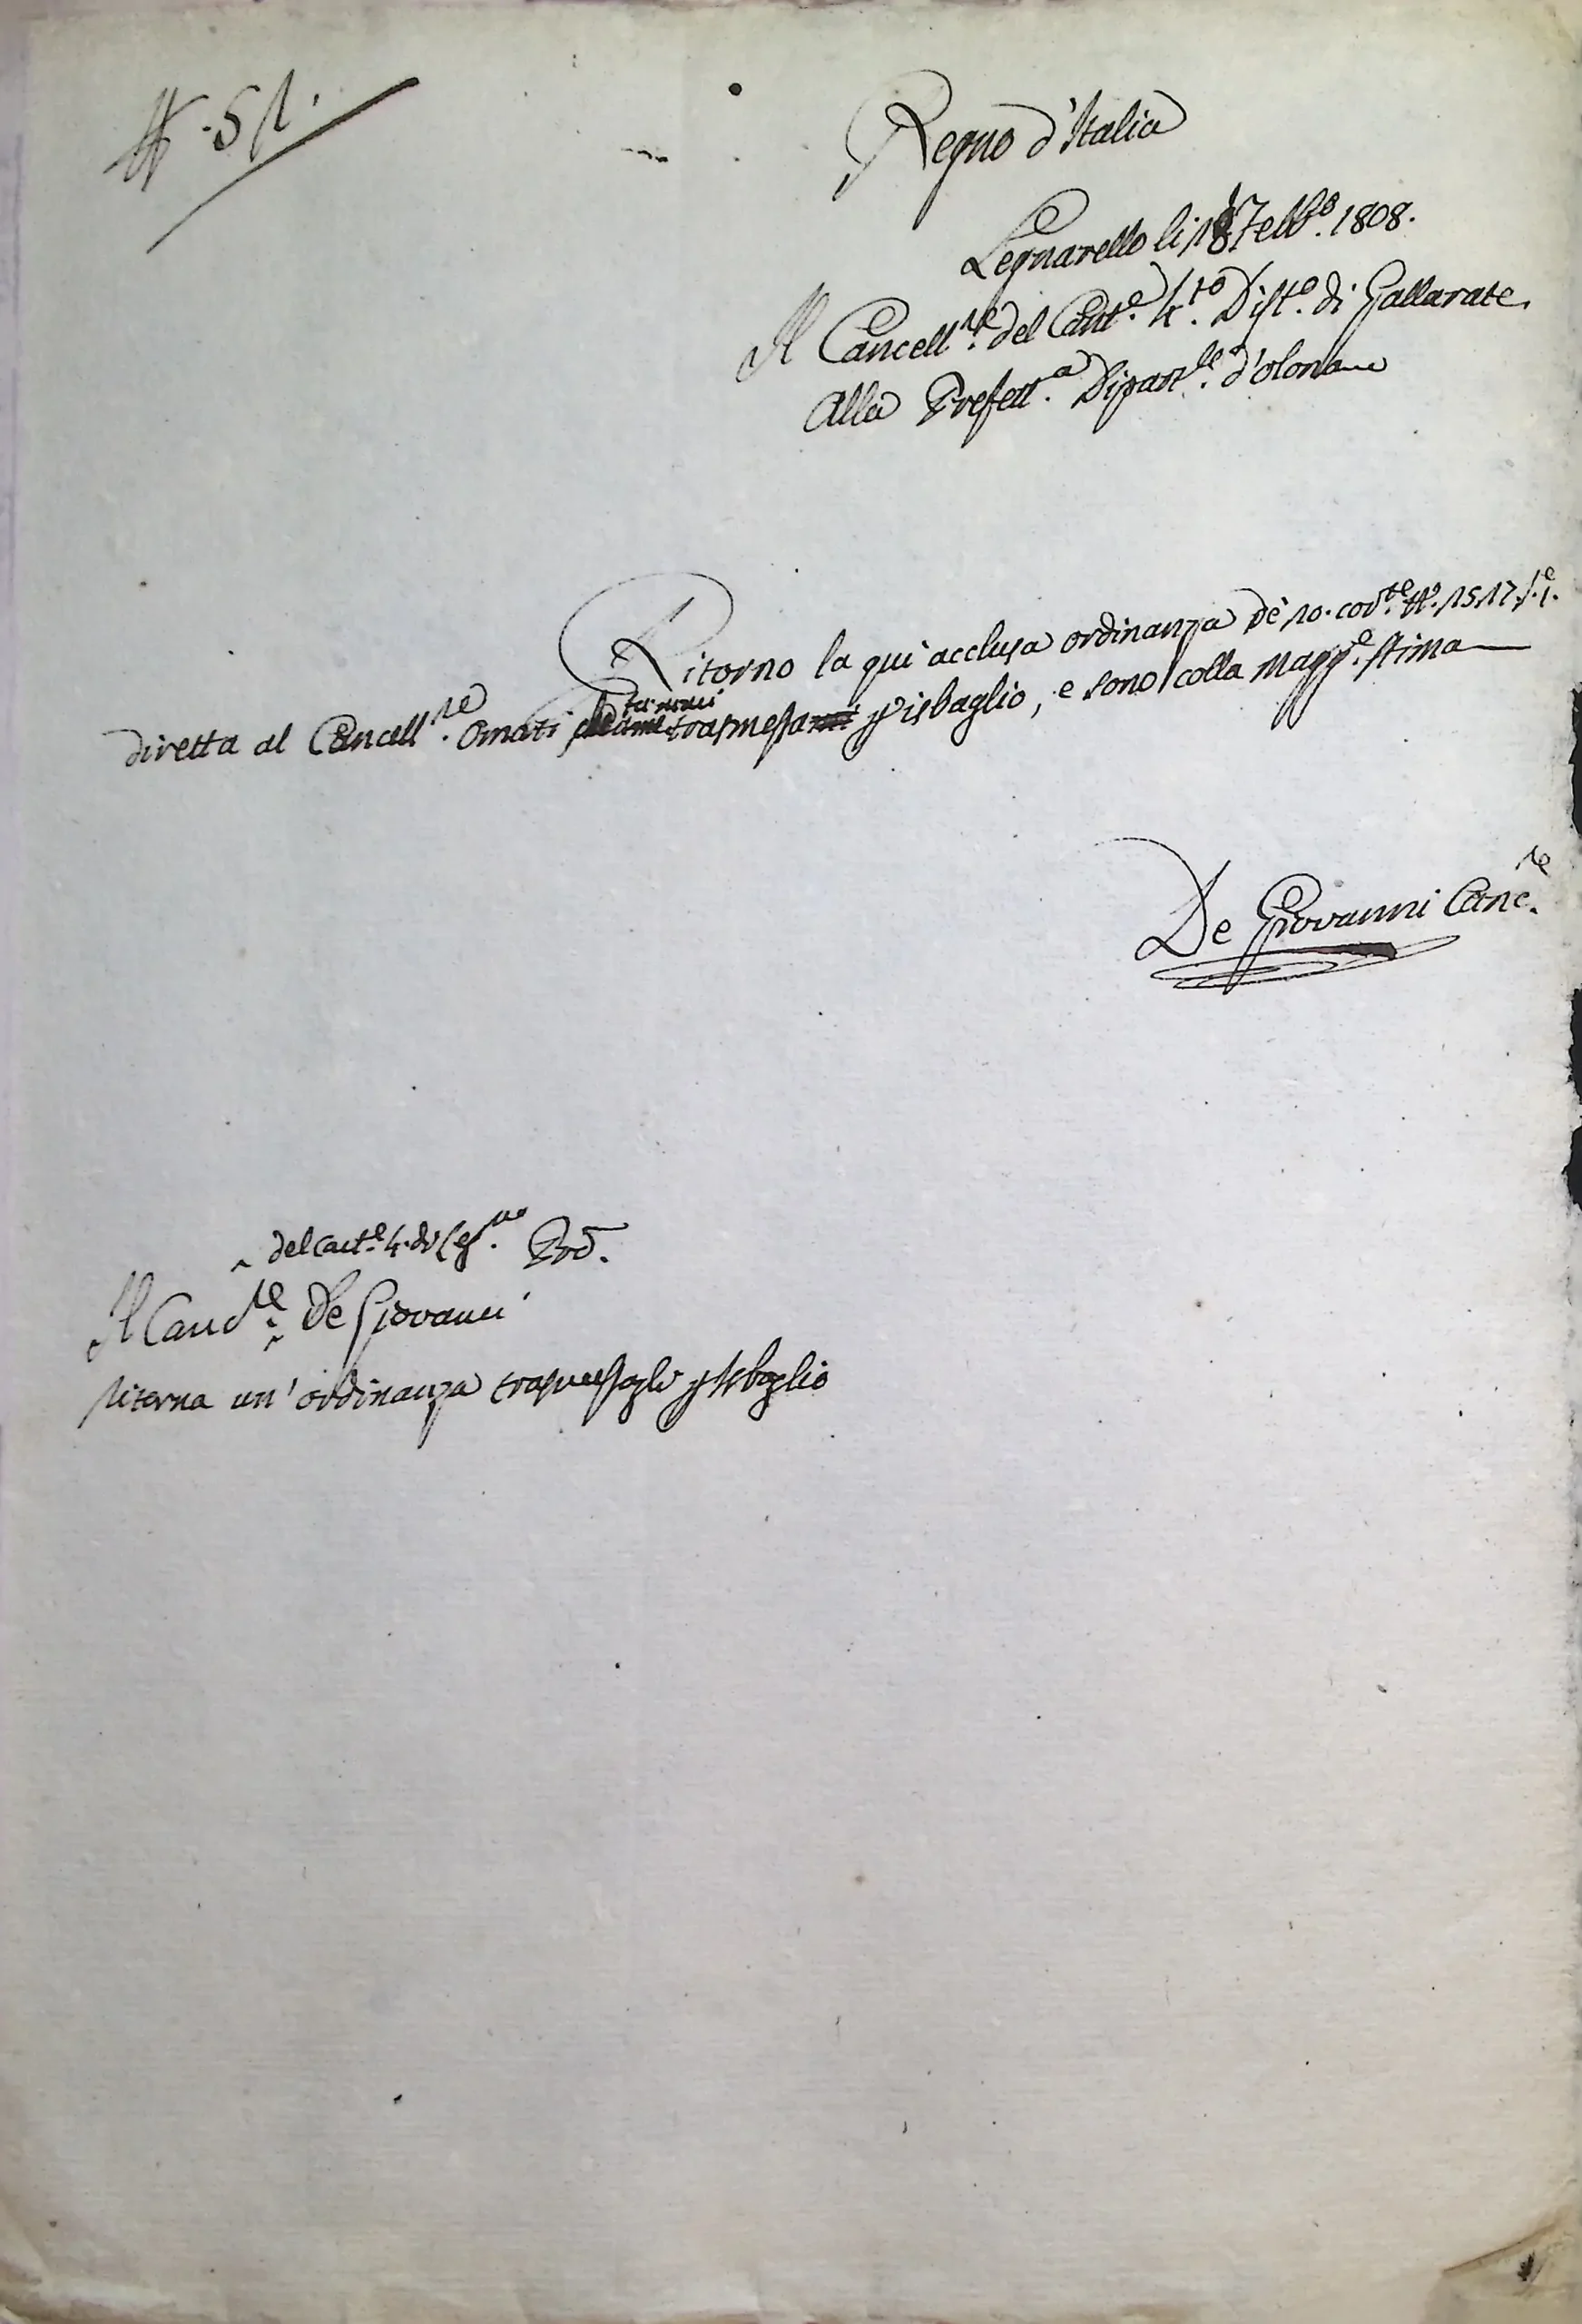 N. 51.
Regno d'Italia
Legnarello li 18 Febb.o 1808.
Il Cancell.re del Cant.e 4.to Dist.o di Gallarate
Alla Prefett.a Dipart.le d'olona
Ritorno la qui acclusa ordinanza de' 10. cor.te N.o 1517. S.e 1.
diretta al Cancell.re Omati trasmessa p isbaglio, e sono colla magg.e stima
De Giovanni Canc.re
del Cant.e 4. di Leg.no Pro.
Il Canc.re De Giovanni
ritorna un' ordinanza trasmessagli p isbaglio